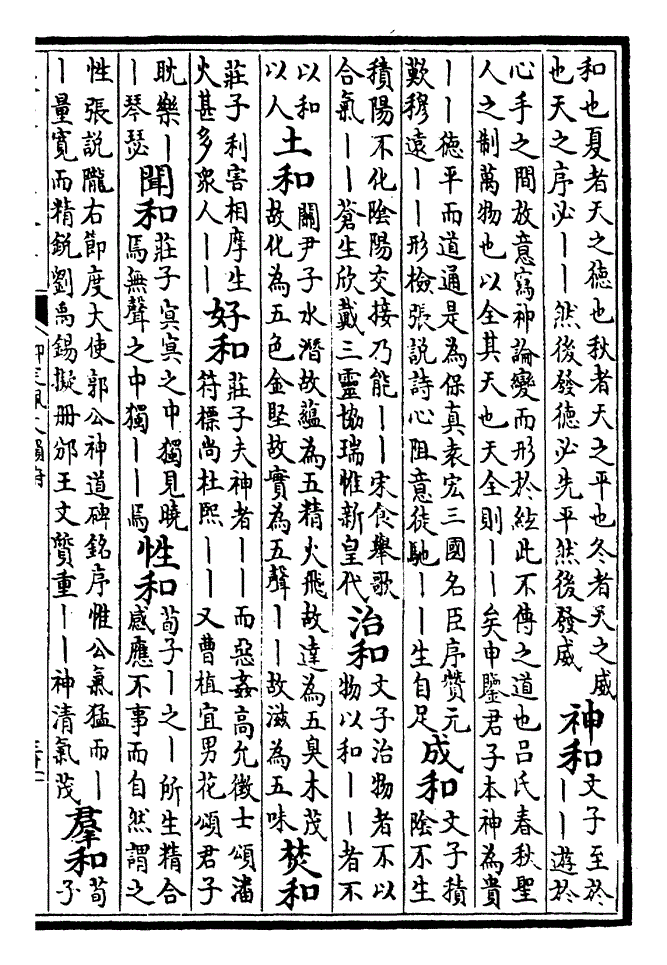 和也夏者天之德也秋者天之平也冬者天之威
也天之序必——然後發德必先平然後發威
神和
文子至於
——遊於
心手之間放意寫神論變而形於絃此不傳之道也呂氏春秋聖
人之制萬物也以全其天也天全則——矣申鑒君子本神為貴
——德平而道通是為保真袁宏三國名臣序贊元
歎穆遠——形檢張說詩心阻意徒馳——生自足
成和
文子積
陰不生
積陽不化陰陽交接乃能——宋食舉歌
合氣——蒼生欣戴三靈協瑞惟新皇代
治和
文子治物者不以
物以和——者不
以和
以人
土和
關尹子水潛故蘊為五精火飛故達為五臭木茂
故化為五色金堅故實為五聲——故滋為五味
焚和
莊子利害相摩生
火甚多衆人——
好和
莊子夫神者——而惡姦高允徵士頌潘
符標尚杜熙——又曹植宜男花頌君子
耽樂—
—琴瑟
聞和
莊子冥冥之中獨見曉
焉無聲之中獨——焉
性和
荀子—之—所生精合
感應不事而自然謂之
性張說隴右節度大使郭公神道碑銘序惟公氣猛而—
—量寬而精銳劉禹錫擬册邠王文贊重——神清氣茂
羣和
荀
子